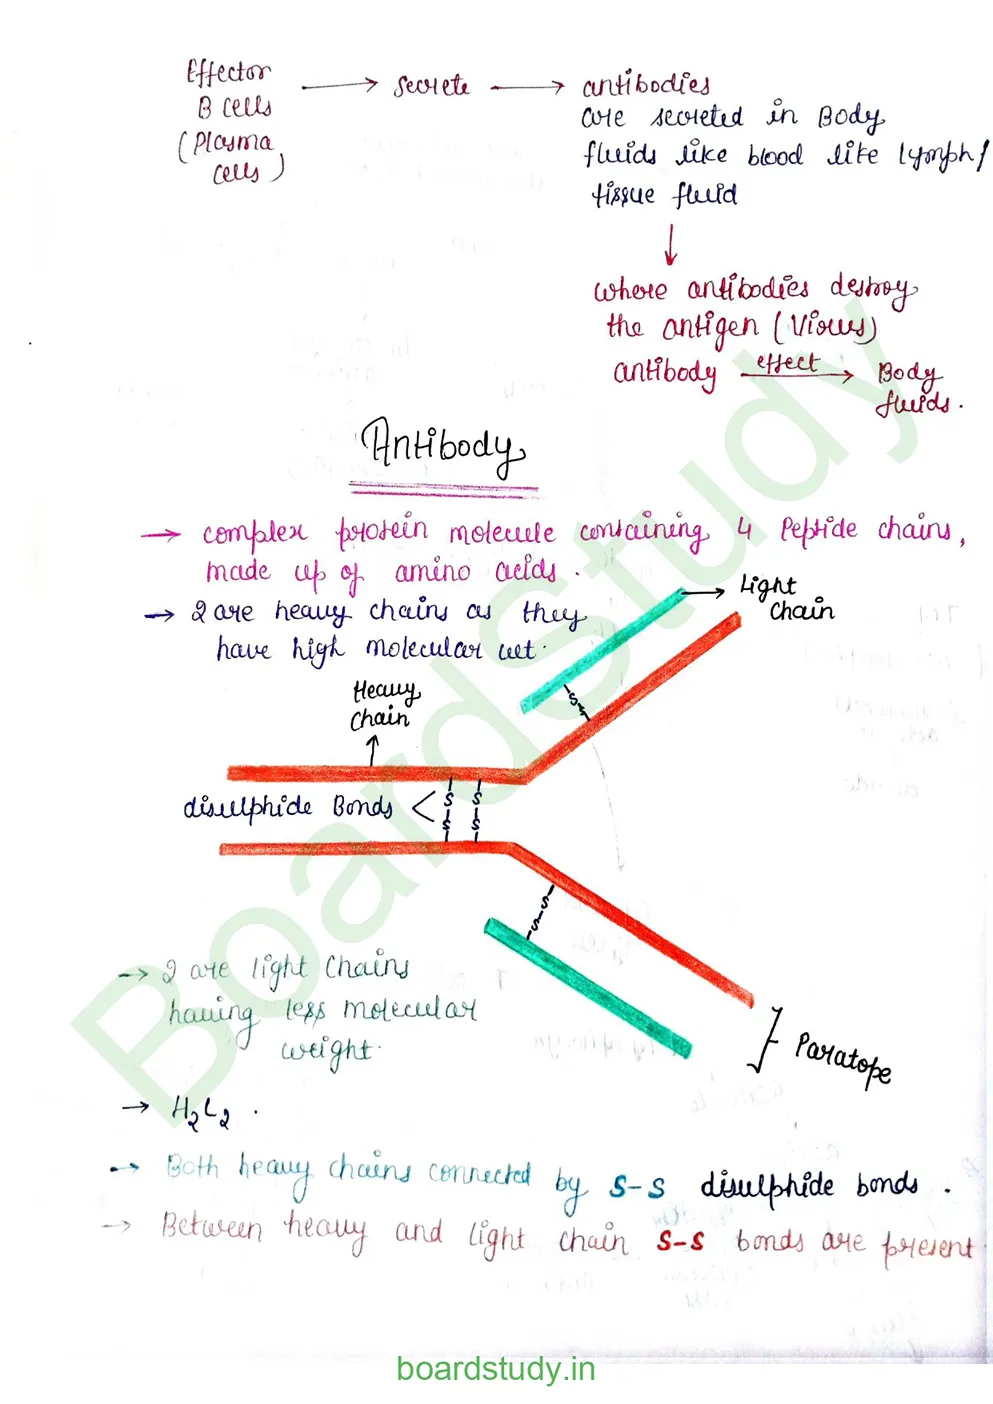 Effector
B cells
(Plasma
cells)
secrete
antibodies
are secreted in Body
fluids like blood like lymph/
tissue fluid
where antibodies destroy
the antigen (Virus)
antibody effect Body
fluids.
Antibody
→ complex protein molecule containing 4 Peptide chains,
made up of amino acids.
→ 2 are heavy chains as they
have high molecular wt.
Light
chain
Heavy
chain
S
S
disulphide Bonds
S S
S S
S
S
→ 2 are light chains
having less molecular
weight.
Paratope
→ H2L2.
→ Both heavy chains connected by S-S disulphide bonds.
→ Between heavy and light chain S-S bonds are present.
BoardStudy
boardstudy.in